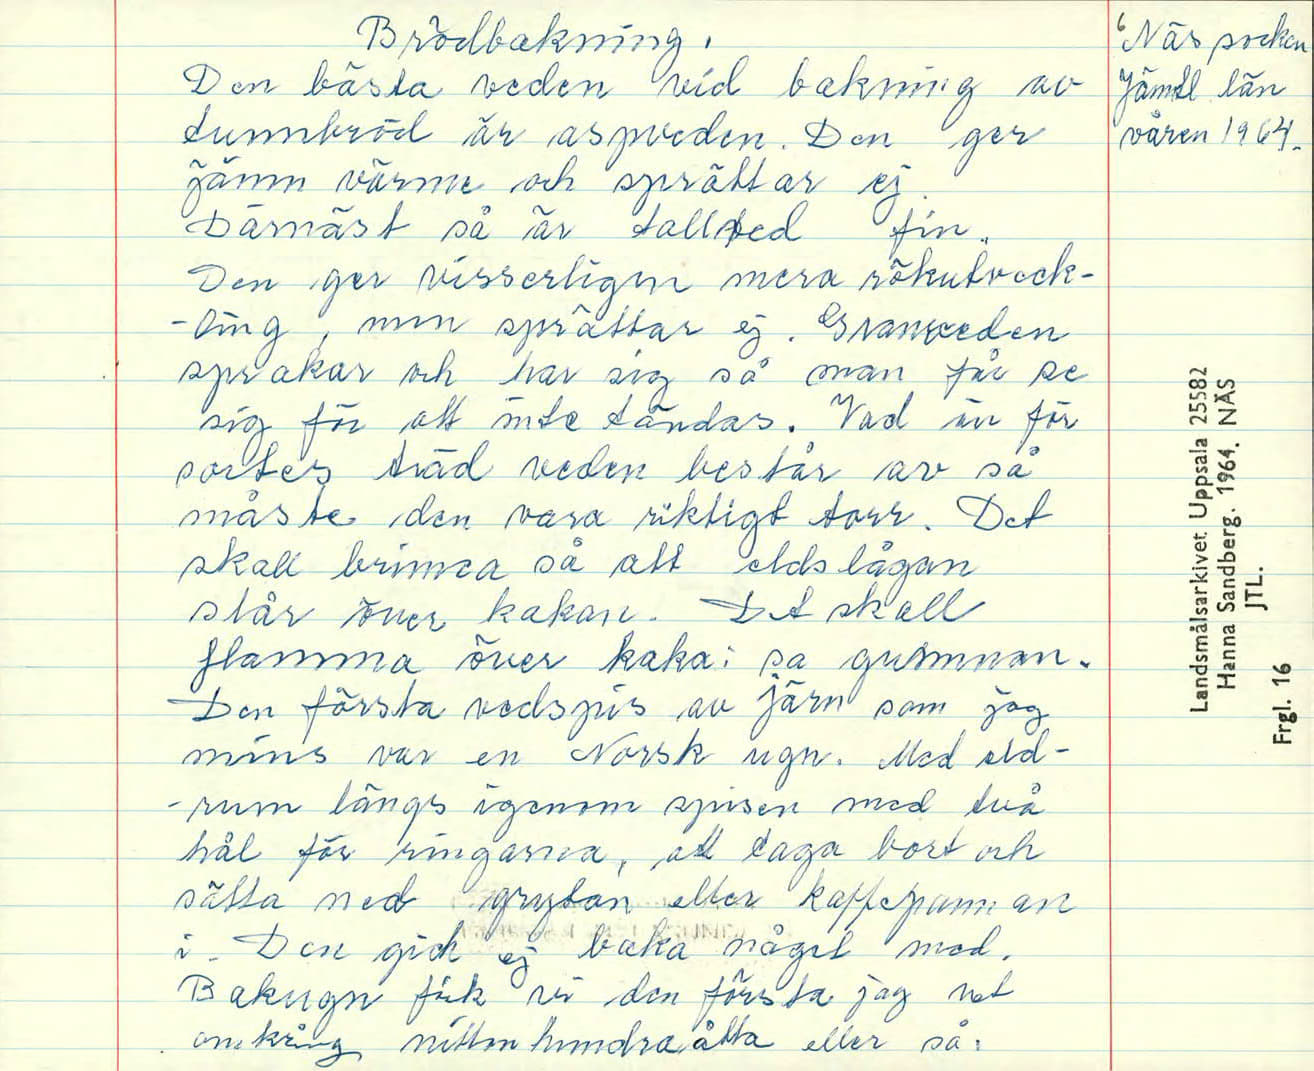 Brödbakning.
Den bästa veden vid bakning av
tunnbröd är aspveden. Den ger
jämn värme och sprättar ej.
Därnäst så är tallved fin.
Den ger visserligen mera rökutveck-
-ling, men sprättar ej. Granveden
sprakar och har sig så man får se
sig för att inte tändas. Vad än för
sorters träd veden består av så
måste den vara riktigt torr. Det
skall brinna så att eldslågan
slår över kakan. Det skall
flamma över kaka: sa gummnan.
Den första vedspis av järn som jag
mins var en Norsk ugn. Med eld-
-rum längs igenom spisen med två
hål för ringarna, att taga bort och
sätta ned grytan eller kaffepannan
i. Den gick ej baka något med.
Bakugn fick vi den första jag vet
omkring nittonhundraåtta eller så:
6
Näs socken
Jämtl län
våren 1964.
Landsmålsarkivet Uppsala 25582
Hanna Sandberg. 1964. NÄS
JTL.
Frgl. 16